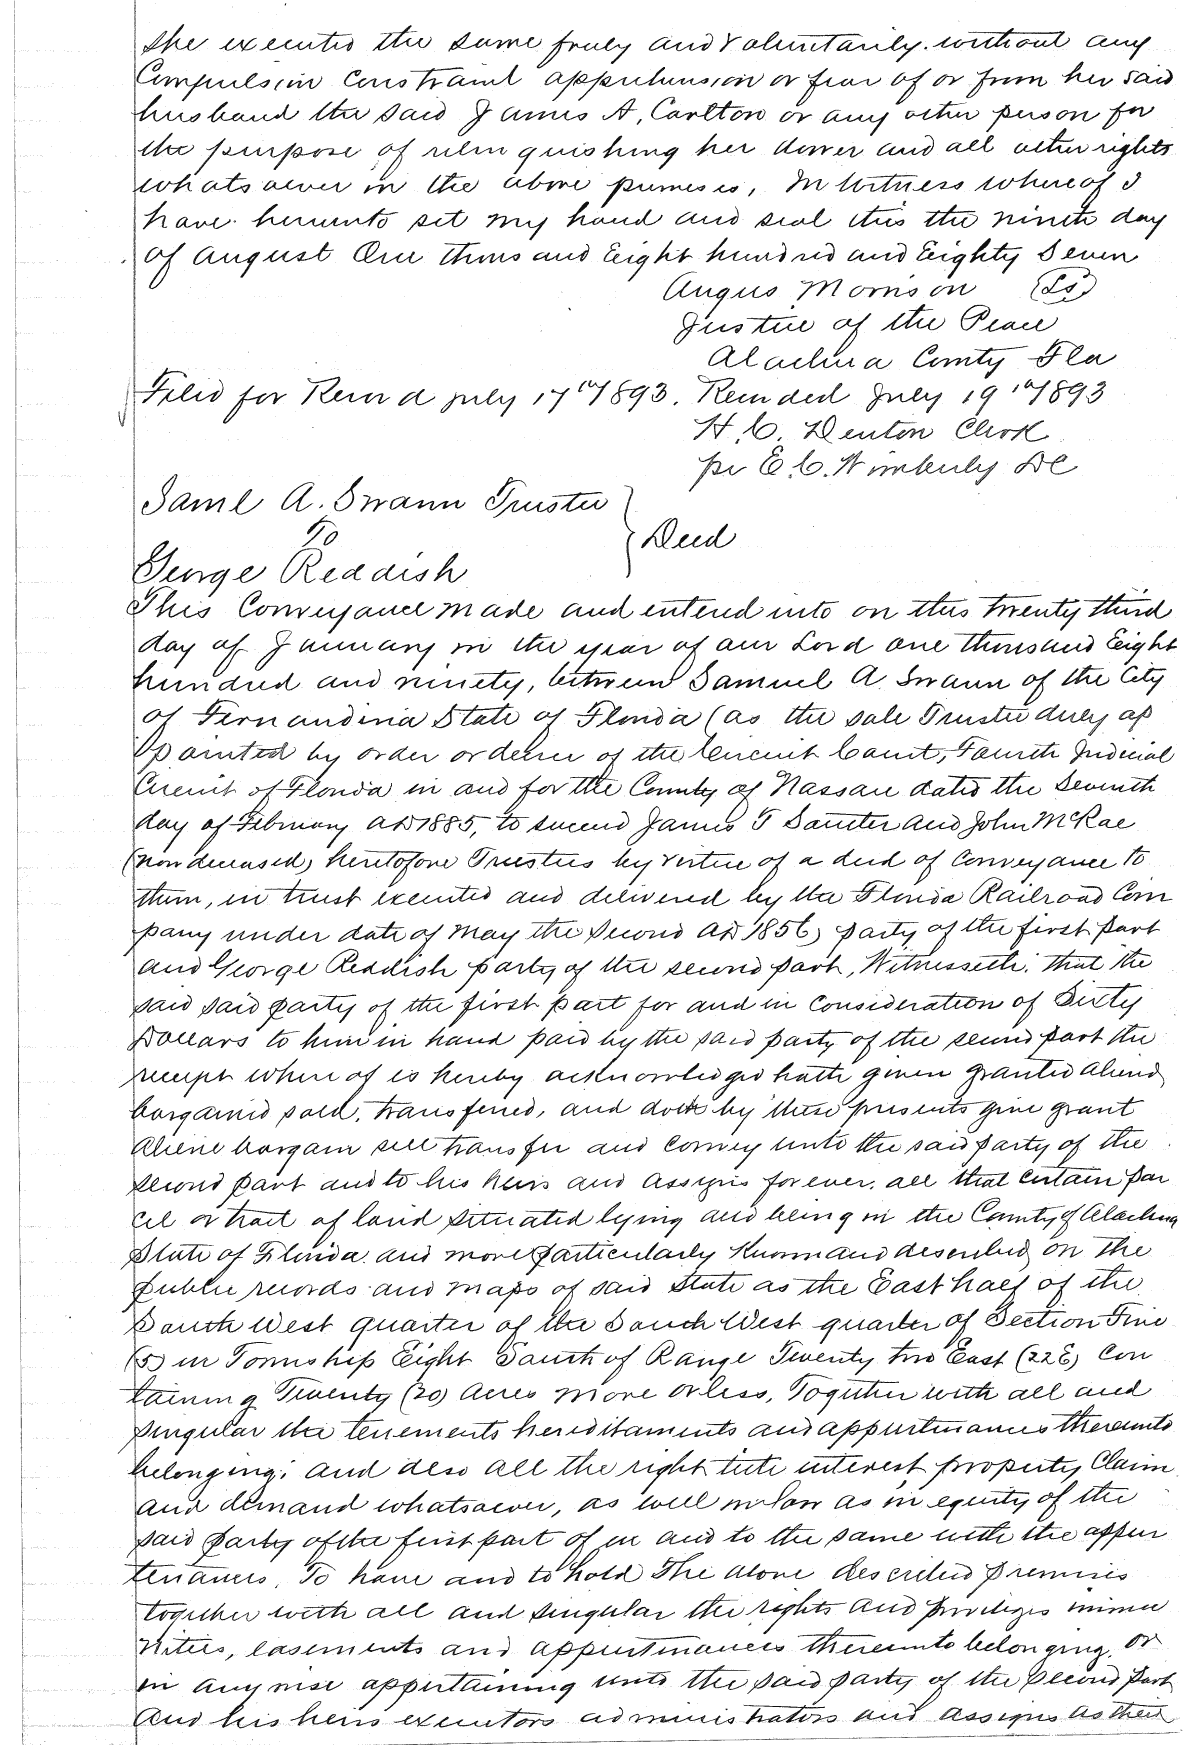 she executed the same freely and voluntarily. without any
Compulsion Constraint apprehension or fear of or from her said
husband the said James A, Carlton or any other person for
the purpose of relinquishing her dower and all other rights
whatsoever in the above premises, In Witness whereof I
have hereunto set my hand and seal this the ninth day
of August One thousand Eight hundred and Eighty Seven
Angus Morrison (LS)
Justice of the Peace
Alachua County Fla
Filed for Record July 17th 1893. Recorded July 19th 1893
H. C. Denton Clerk
pr E. C. Wimberly DC
Saml A. Swann Trustee
To
Deed
George Reddish
This Conveyance made and entered into on this twenty third
day of January in the year of our Lord one thousand Eight
hundred and ninety, between Samuel A. Swann of the City
of Fernandina State of Florida (as the sole Trustee duly ap
pointed by order or decree of the Circuit Court, Fourth Judicial
Circuit of Florida in and for the County of Nassau dated the Seventh
day of February AD 1885, to succeed James T Santer and John McRae
(now deceased) heretofore Trustees by virtue of a deed of Conveyance to
them, in trust executed and delivered by the Florida Railroad Com
pany under date of May the Second AD 1856) party of the first part
and George Reddish party of the second part, Witnesseth: that the
said said party of the first part for and in Consideration of Sixty
Dollars to him in hand paid by the said party of the second part the
receipt where of is hereby acknowledged hath given granted aliened
bargained sold, transferred, and doth by these presents give grant
aliene bargain sell transfer and convey unto the said party of the
second part and to his heirs and assigns forever. all that certain par
cel or tract of land situated lying and being in the County of Alachua
State of Florida and more particularly known and described on the
public records and maps of said State as the East half of the
South West quarter of the South West quarter of Section Five
(5) in Township Eight South of Range Twenty two East (22E) Con
taining Twenty (20) Acres more or less, Together with all and
singular the tenements hereditaments and appurtenances thereunto
belonging: and also all the right title interest property Claim
and demand whatsoever, as well in law as in equity of the
said party of the first part of in and to the same with the appur
tenances. To have and to hold The above described premises
together with all and singular the rights and privileges immu
nities, easements and appurtenances thereunto belonging, or
in any wise appertaining unto the said party of the second part
and his heirs executors administrators and assigns as their